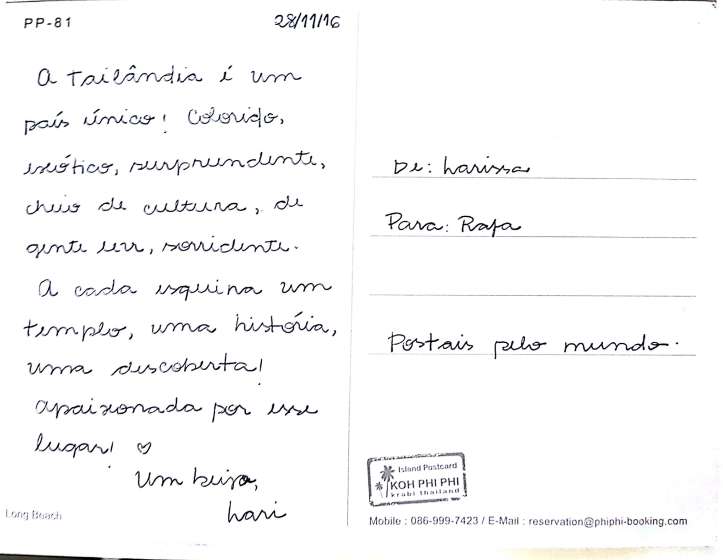 PP-81
28/11/16
A Tailândia é um
país único! Colorido,
exótico, surpreendente,
cheio de cultura, de
gente leve, sorridente.
A cada esquina um
templo, uma história,
uma descoberta!
Apaixonada por esse
lugar! ♡
Um beijo,
Lari
Long Beach
De: Larissa
Para: Rafa
Postais pelo mundo.
Island Postcard
KOH PHI PHI
krabi thailand
Mobile : 086-999-7423 / E-Mail : reservation@phiphi-booking.com